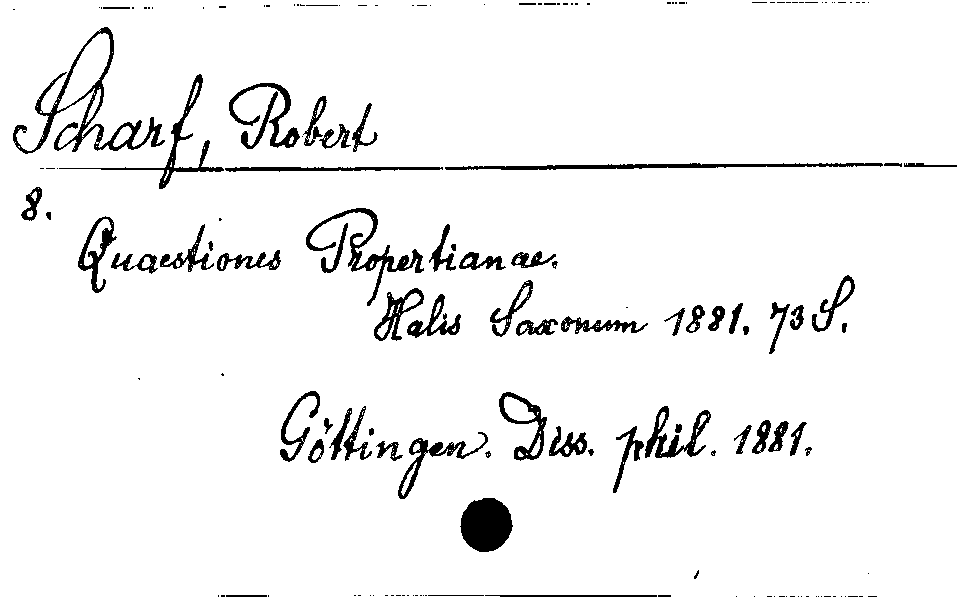 Scharf, Robert
8.
Quaestiones Propertianae.
Halis Saxonum 1881. 73 S.
Göttingen. Diss. phil. 1881.